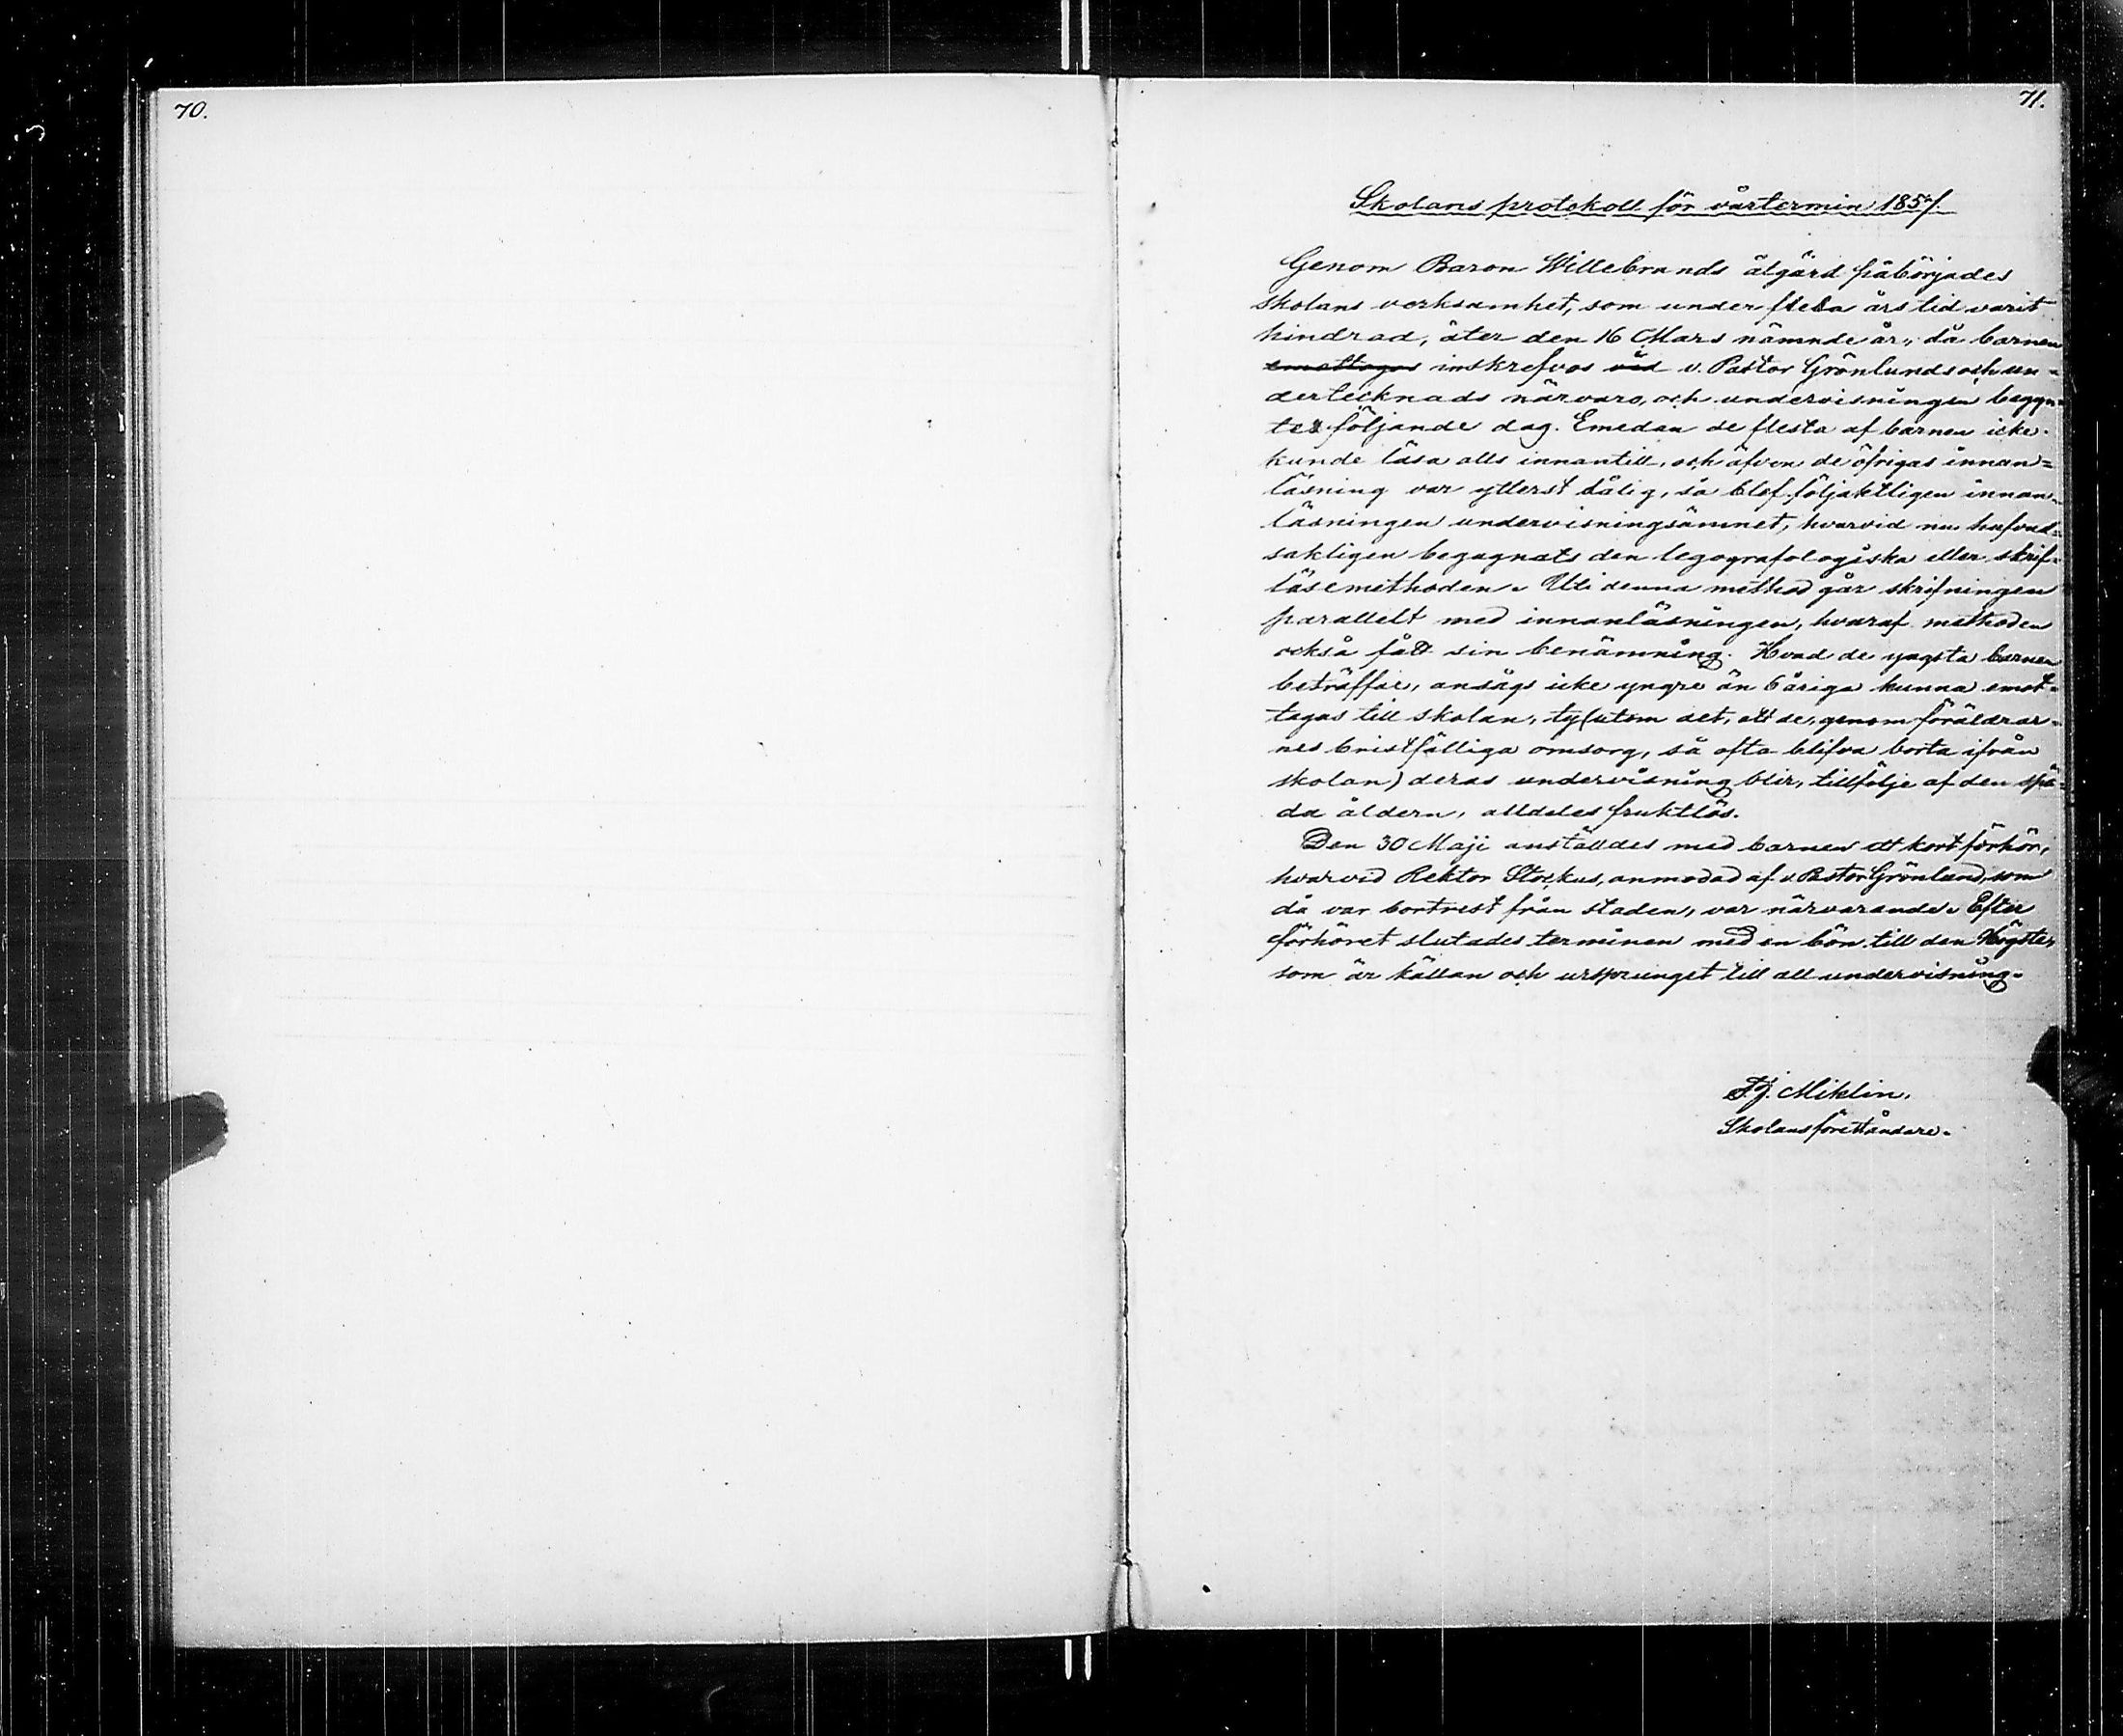 70.
71.
Skolans protokoll för vårtermin 1857.
Genom Baron Willebrands åtgärd påbörjades
skolans verksamhet, som under flera års tid varit
hindrad, åter den 16 Mars nämnde år, då barnen
emottagos inskrefvos vid v. Pastor Grönlunds och un-
dertecknads närvaro, och undervisningen begyn-
tes följande dag. Emedan de flesta af barnen icke
kunde läsa alls innantill, och äfven de öfrigas innan=
läsning var ytterst dålig, så blef följaktligen innan-
läsningen undervisningsämnet, hvarvid nu hufvud-
sakligen begagnats den legografologiska eller skrif-
läsemethoden. Uti denna method går skrifningen
parallelt med innanläsningen, hvaraf methoden
också fått sin benämning. Hvad de yngsta barnen
beträffar, ansågs icke yngre än 6åriga kunna emot-
tagas till skolan, ty (utom det, att de, genom föräldrar-
nes bristfälliga omsorg, så ofta blifva borta ifrån
skolan) deras undervisning blir, tillfölje af den spä-
da åldern, alldeles fruktlös.
Den 30 Maji anställdes med barnen ett kort förhör,
hvarvid Rektor Stockus, anmodad af v. Pastor Grönlund, som
då var bortrest från staden, var närvarande. Efter
förhöret slutades terminen med en bön till den Högste,
som är källan och ursprunget till all undervisning.
F.J. Miklin.
Skolans föreståndare.